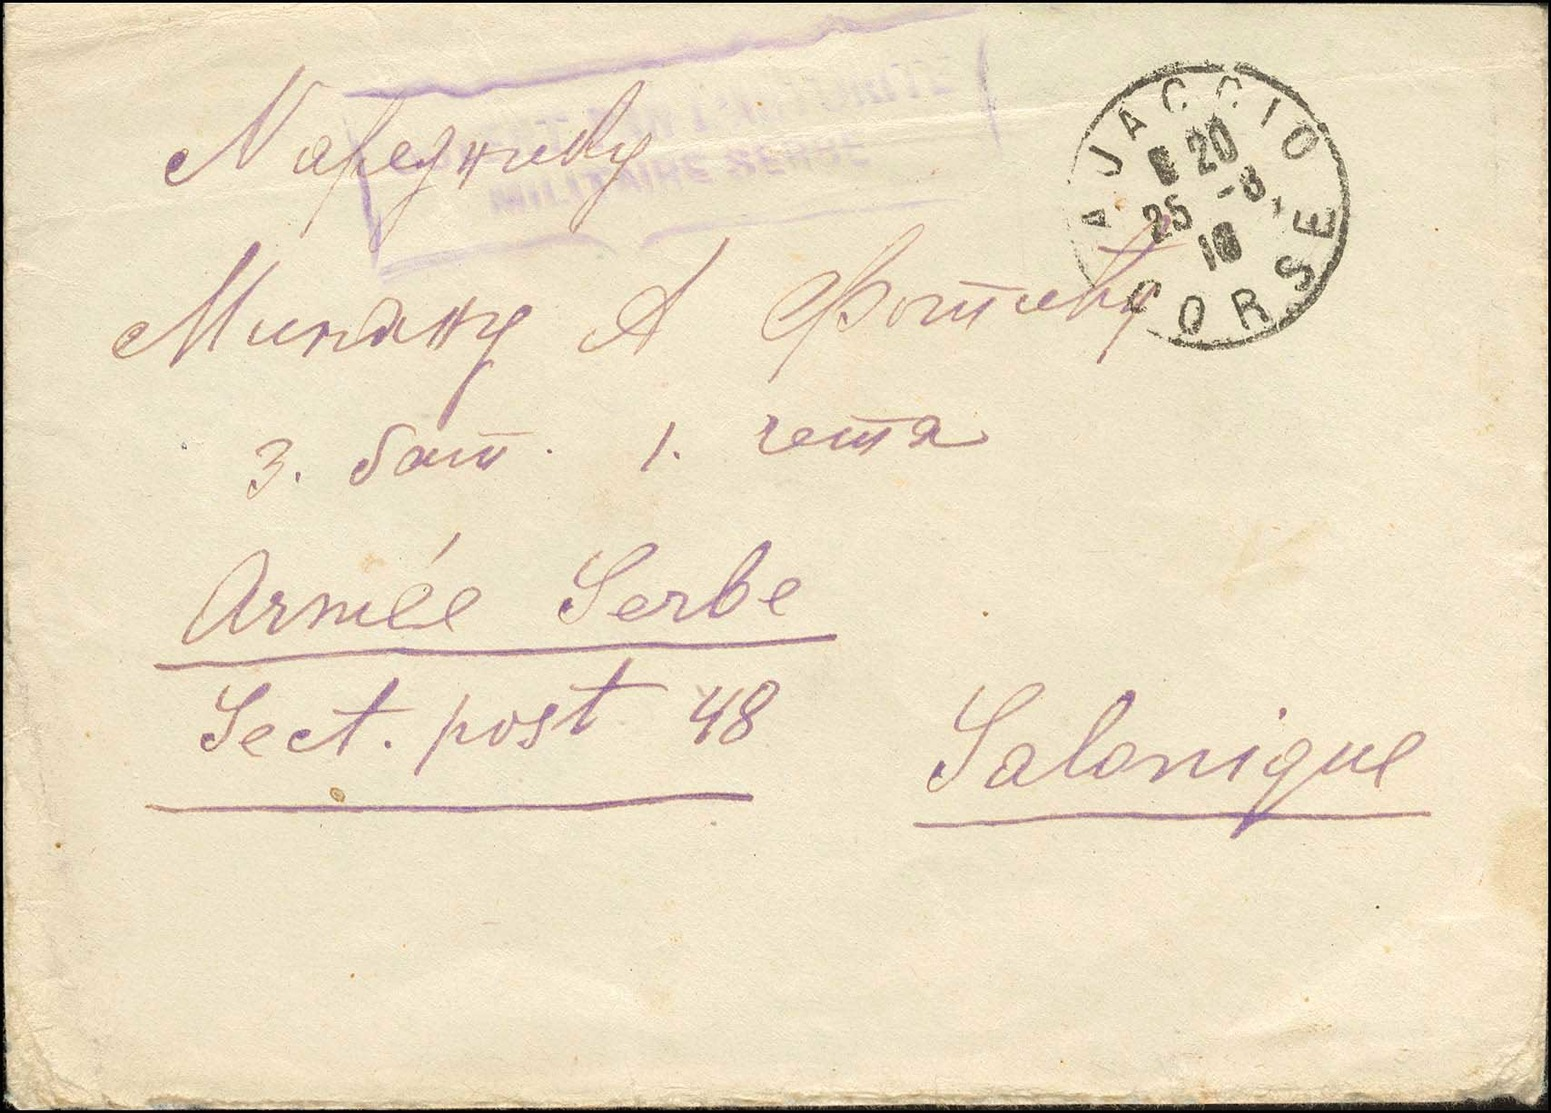 OUVERT PAR L'AUTORITÉ
MILITAIRE SERBE
AJACCIO
20
25 -8
CORSE
Нареднику
Милану А Фотићу
3. бат. 1. чета
Armée Serbe
Sect. post 48
Salonique